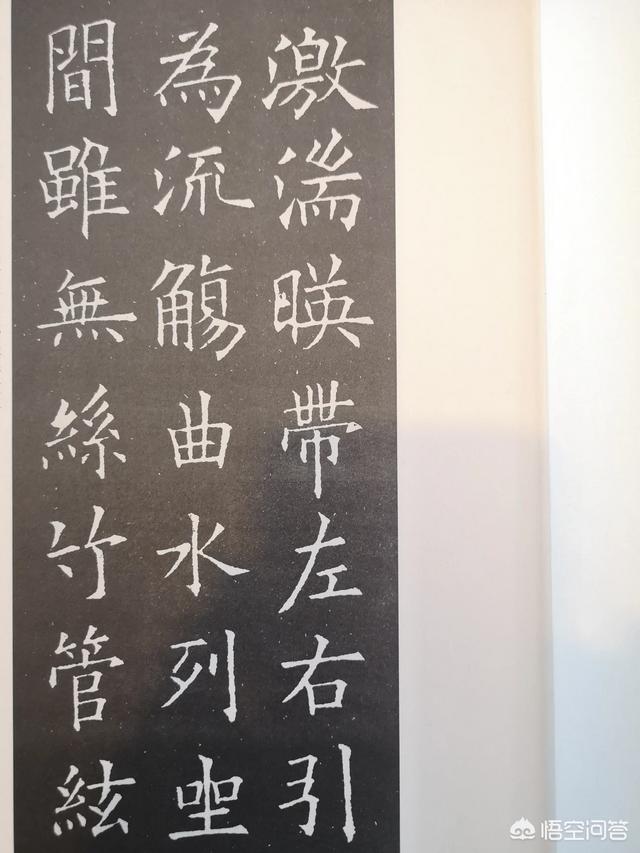 激湍暎帶左右引
為流觴曲水列坐
間雖無絲竹管絃
悟空问答